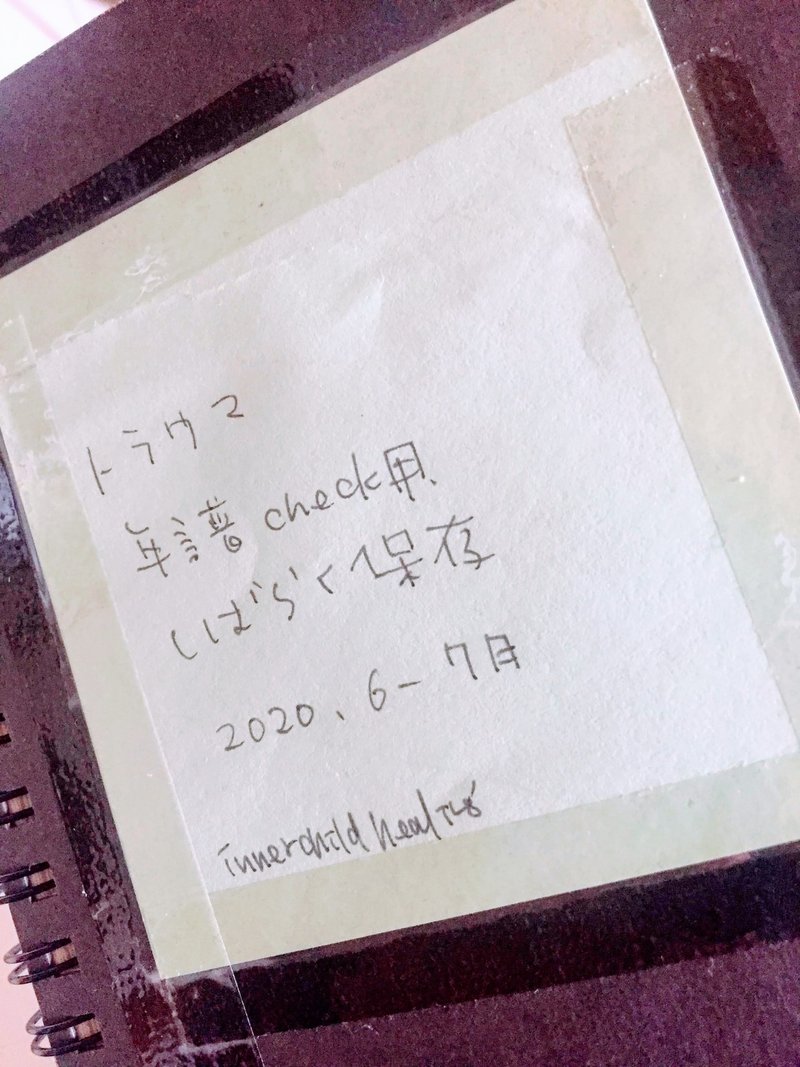 トラウマ
年譜check用、
しばらく保存
2020、6-7月
innerchild healing